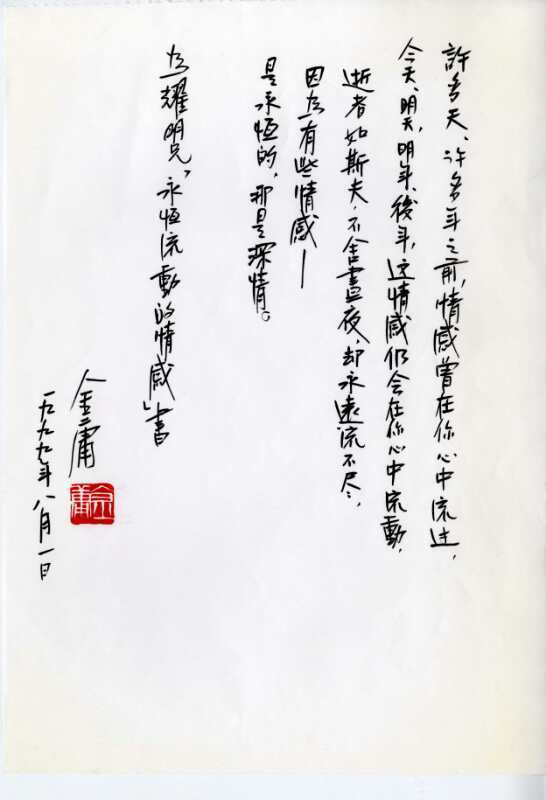 許多天、許多年之前，情感曾在你心中流过，
今天、明天，明年、後年，这情感仍会在你心中流動，
逝者如斯夫，不舍晝夜，却永遠流不尽，
因為有些情感—
是永恒的，那是深情。
為耀明兄「永恒流動的情感」書
金庸
一九九九年八月一日
金庸